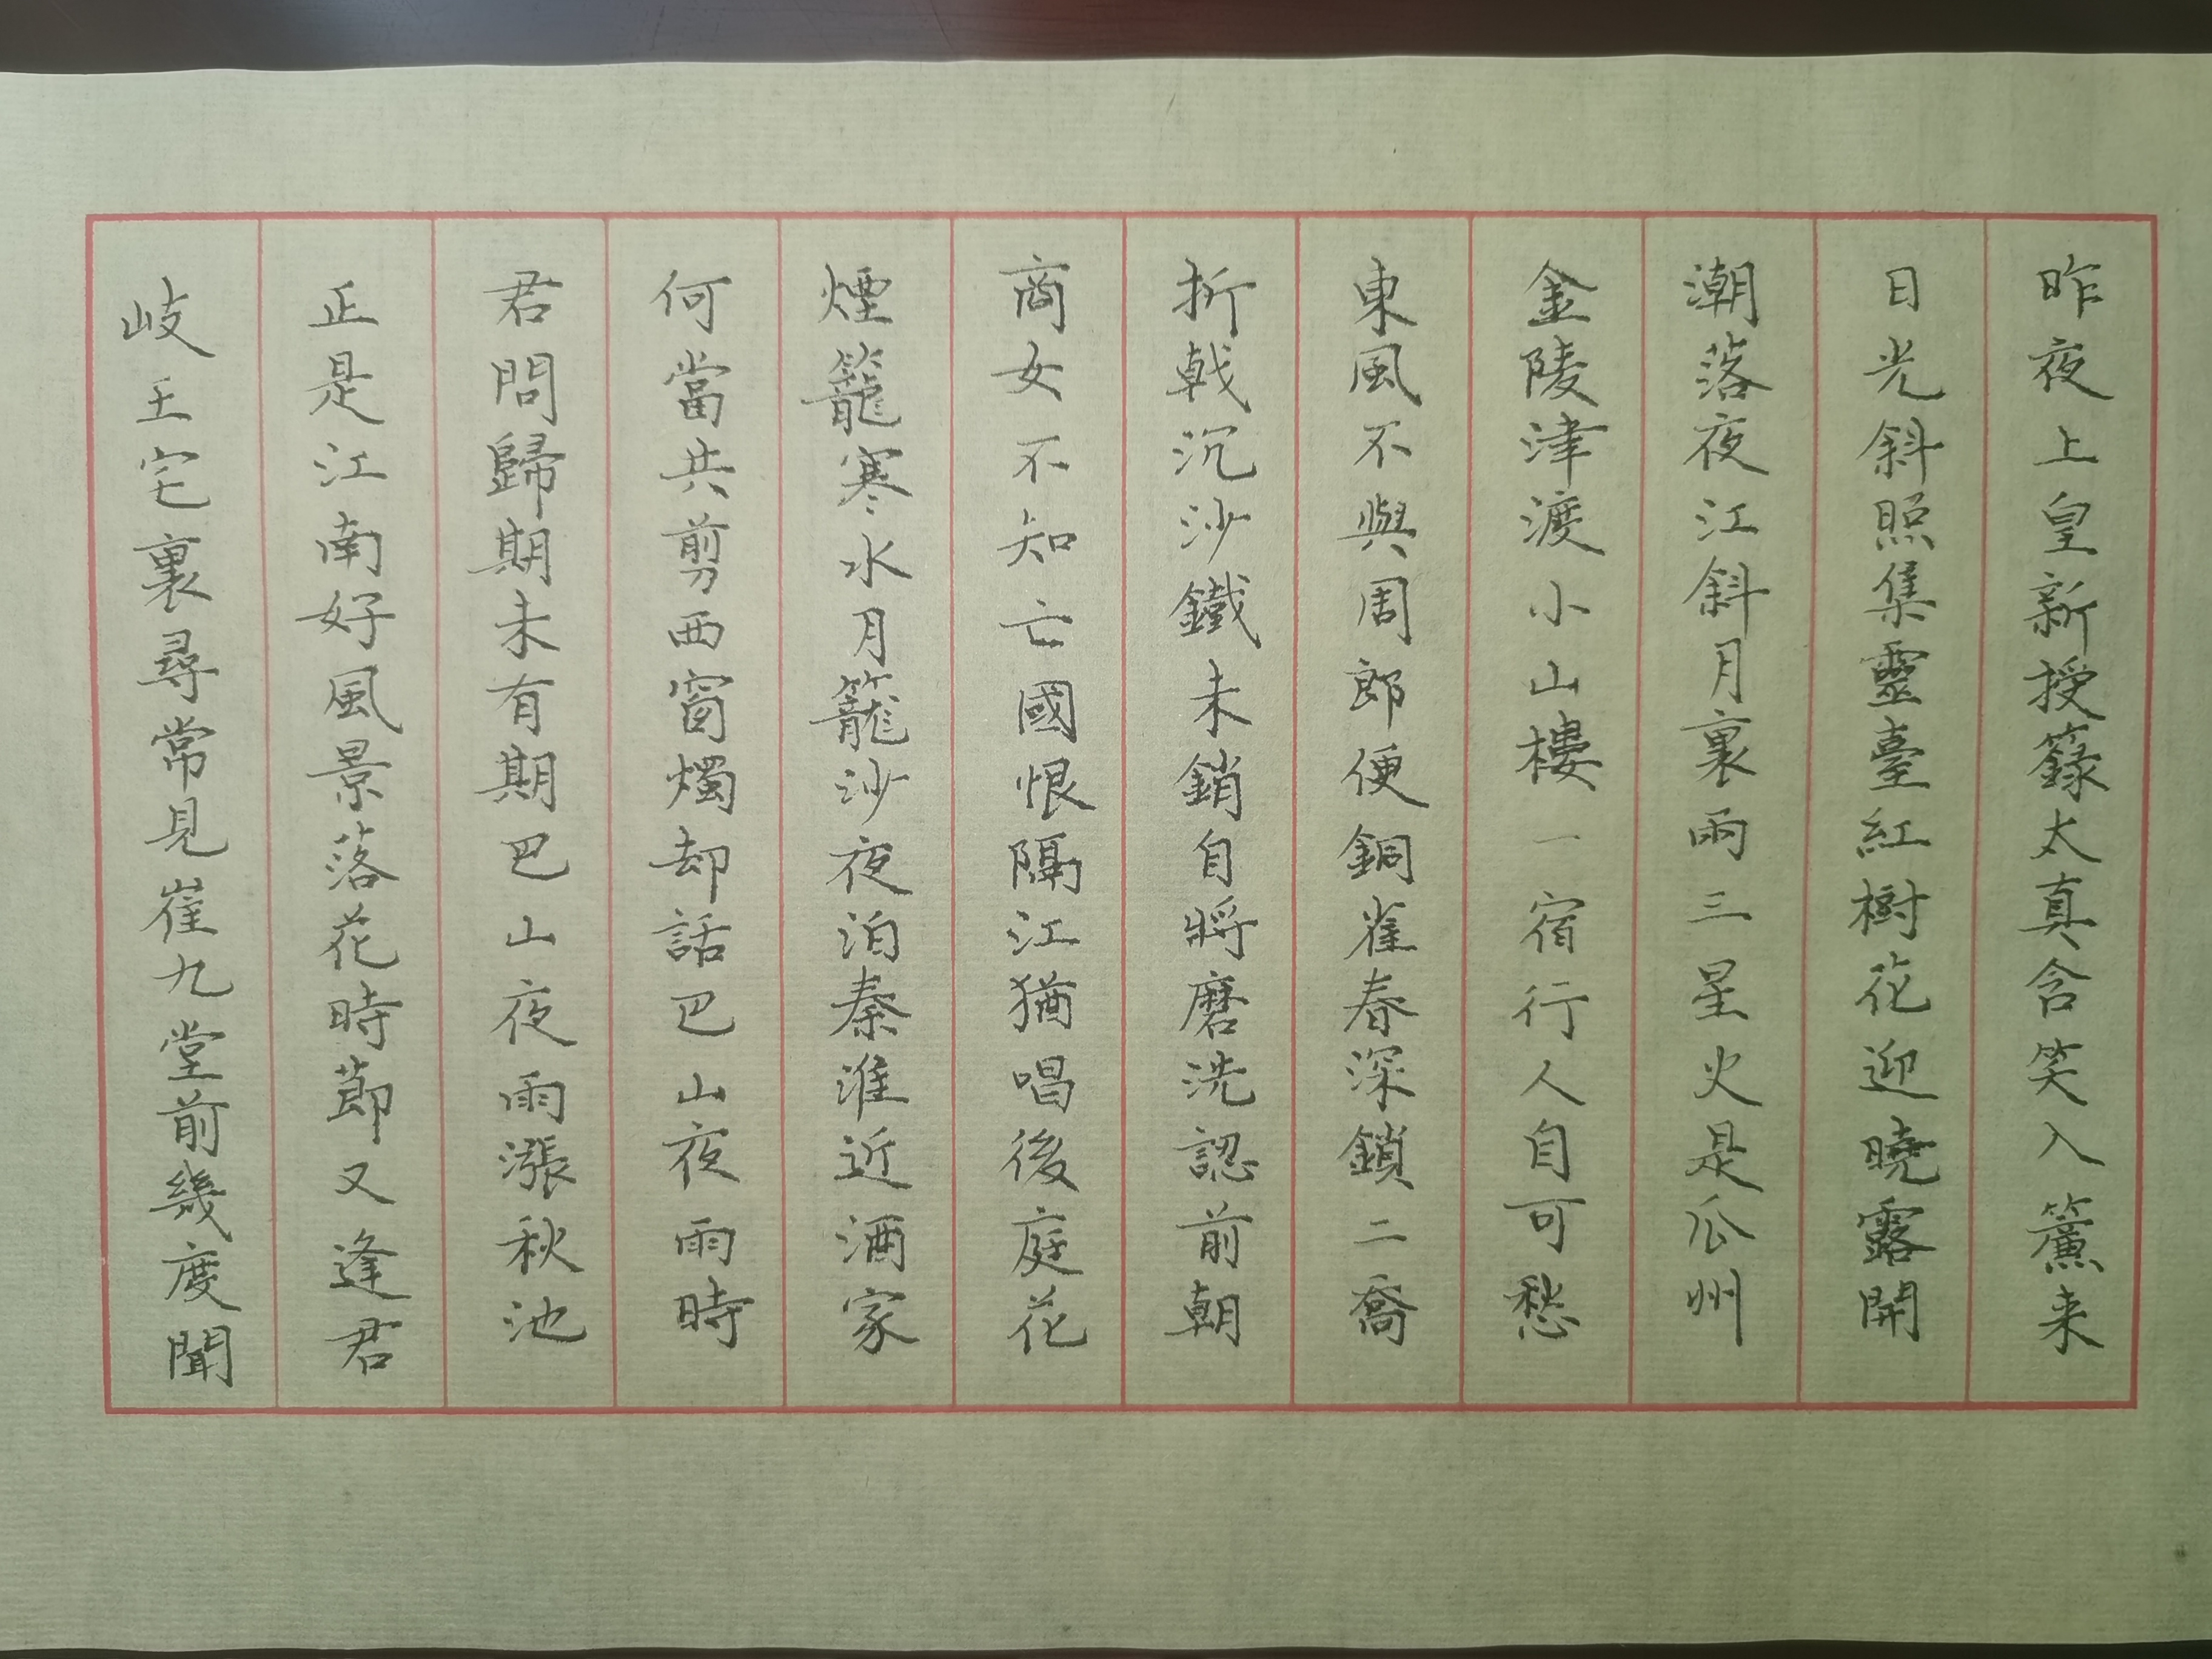 昨夜上皇新授籙太真含笑入簾来
日光斜照集靈臺紅樹花迎曉露開
潮落夜江斜月裏兩三星火是瓜州
金陵津渡小山樓一宿行人自可愁
東風不與周郎便銅雀春深鎖二喬
折戟沉沙鐵未銷自將磨洗認前朝
商女不知亡國恨隔江猶唱後庭花
煙籠寒水月籠沙夜泊秦淮近酒家
何當共剪西窗燭却話巴山夜雨時
君問歸期未有期巴山夜雨漲秋池
正是江南好風景落花時節又逢君
岐王宅裏尋常見崔九堂前幾度聞